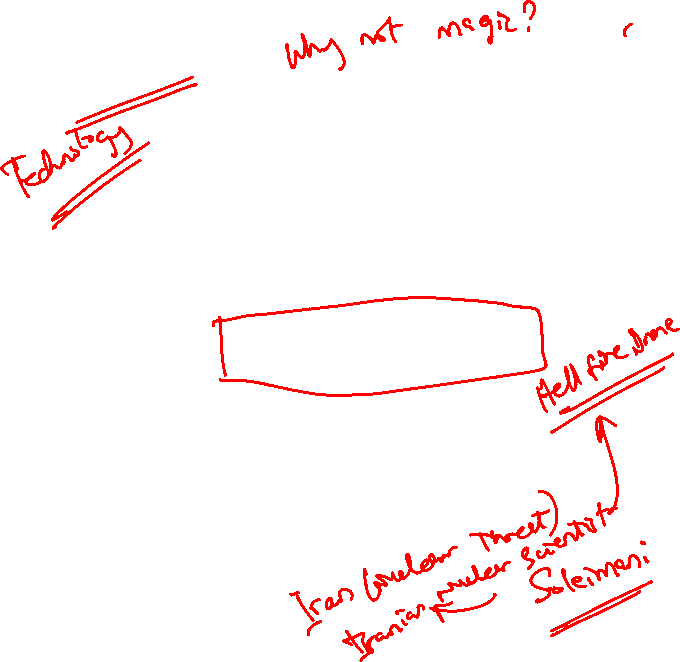 Why not magic?
Technology
Hell fire Drone
Iran (nuclear Threat)
Iranian nuclear scientist
Soleimani